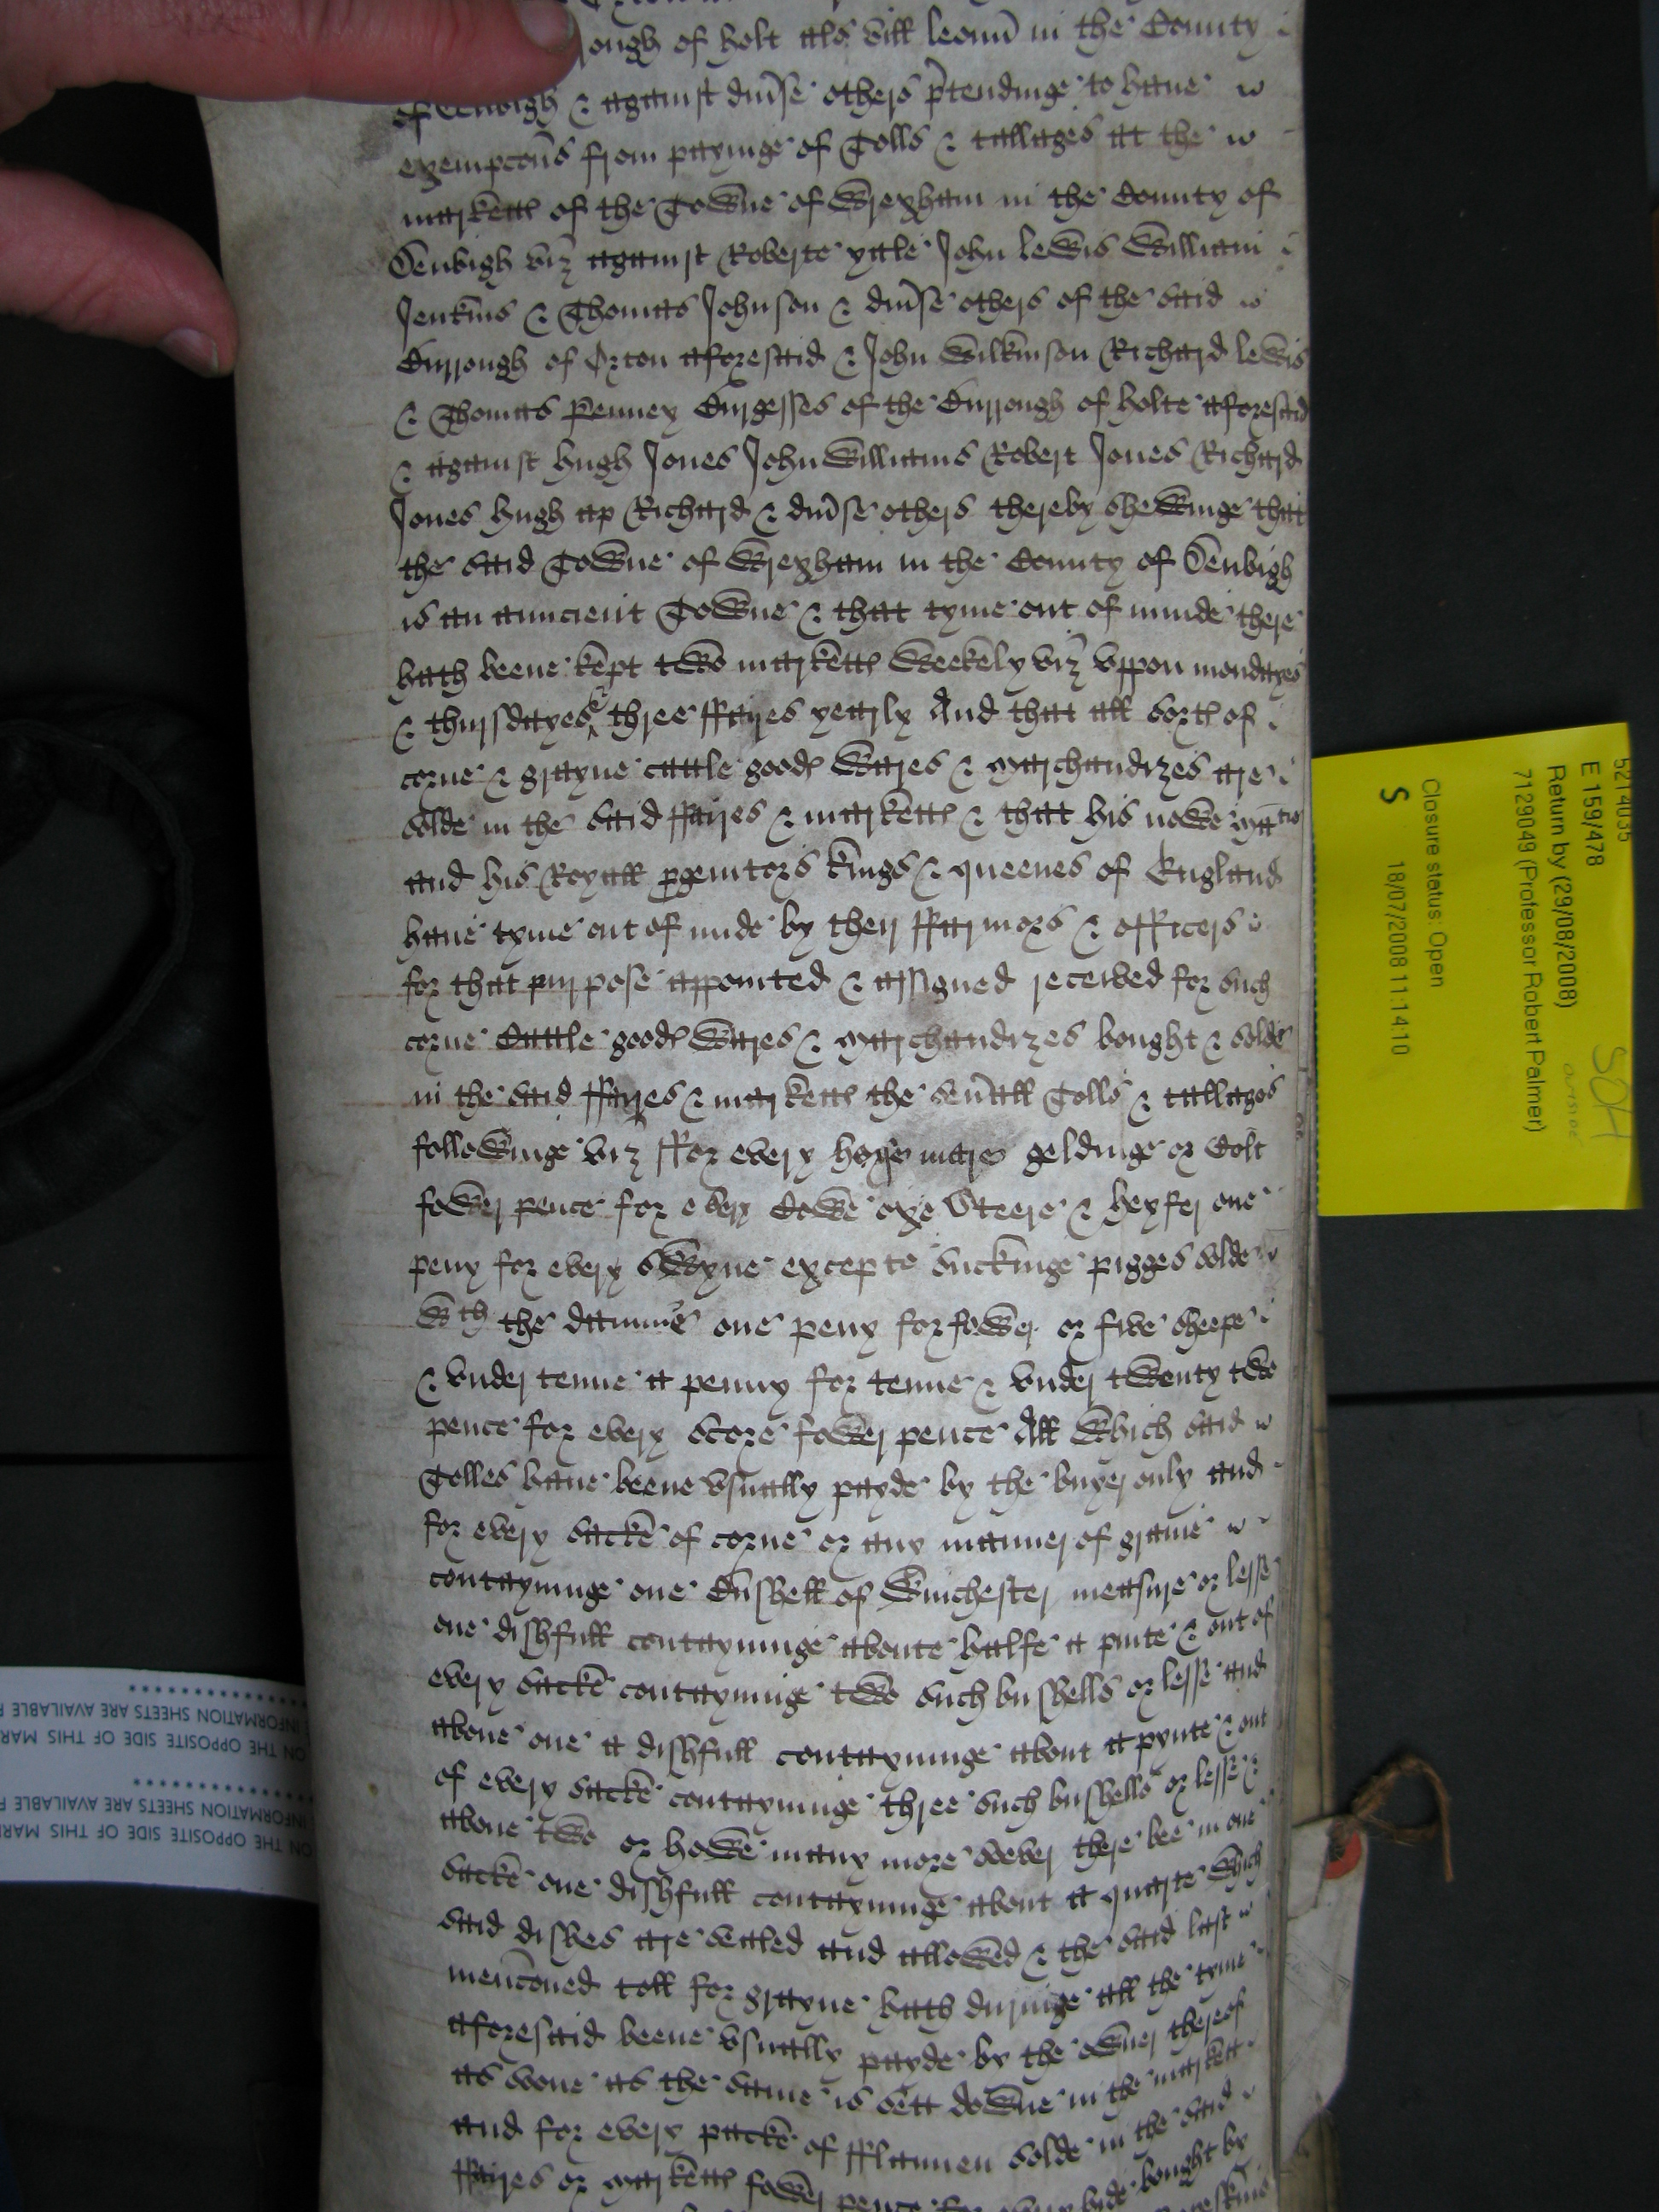 ough of holt als vill leonu in the County
of Denbigh & against divse others ptendinge to have
exempcons from payinge of Tolls & tallages at the
markett of the Towne of Wrexham in the County of
Denbigh viz against Roberte yale John lewis William
Jenkins & Thomas Johnson & divse others of the said
Burrough of Orton aforesaid & John Wilkinson Richard lewis
& Thomas Penney Burgesses of the Burrough of holte aforesaid
& against hugh Jones John Williams Robert Jones Richard
Jones hugh ap Richard & divse others thereby shewinge that
the said Towne of Wrexham in the County of Denbigh
is an auncient Towne & that tyme out of minde there
hath beene kept two marketts weekely viz vppon mondayes
& thursdayes & three ffayres yearly And that all sorts of
corne & grayne cattle goods wares & marchandizes are
solde in the said ffayres & marketts & that his nowe matie
and his Royall pgenitors kings & queenes of England
have tyme out of minde by their ffarmors & officers
for that purpose appointed & assigned received for such
corne Cattle goods wares & marchandizes bought & solde
in the said ffayres & marketts the sevall Tolls & tallages
followinge viz ffor every horse mare geldinge or Colt
fower pence for every Cowe oxe Steere & heyfer one
peny for every swyne excepte suckinge pigges solde
wth the damme one peny for fower or five sheepe
& vnder tenne a penny for tenne & vnder twenty two
pence for every score fower pence All which said
Tolles have beene vsually payde by the buyer only and
for every sacke of corne or any manner of graine
contayninge one Bushell of Winchester measure or lesse
one dishfull contayninge aboute halfe a pinte & out of
every sacke contayninge two such bushells or lesse and
above one a dishfull contayninge about a pynte & out
of every sacke contayninge three such bushells or lesse &
above two or howe many more soever there bee in one
sacke one dishfull contayninge about a quarte which
said dishes are sealed and allowed & the said last
mencioned toll for grayne hath duringe all the tyme
aforesaid beene vsually payde by the owner thereof
as soone as the same is sett downe in the markett
and for every packe of fflannen solde in the said
ffayres or marketts fower pence for every hide bought by
5214035
E 159/478
Return by (29/08/2008)
7129049 (Professor Robert Palmer)
Closure status: Open
S
18/07/2008 11:14:10
INFORMATION SHEETS ARE AVAILABLE
ON THE OPPOSITE SIDE OF THIS MAR
INFORMATION SHEETS ARE AVAILABLE
ON THE OPPOSITE SIDE OF THIS MAR